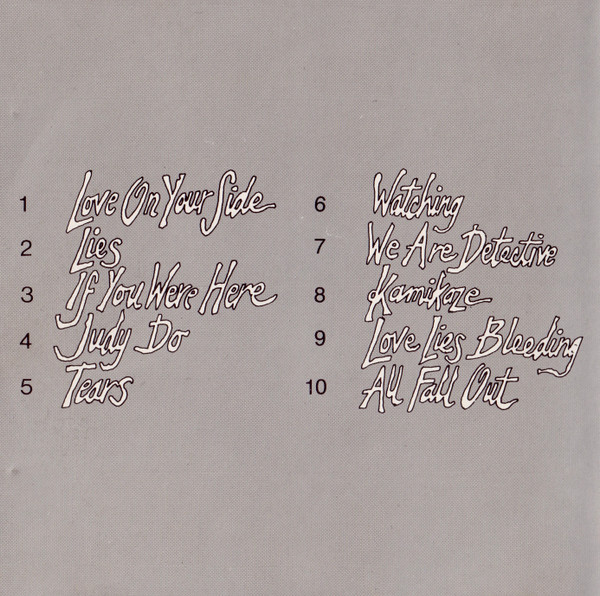 1 Love On Your Side
2 Lies
3 If You Were Here
4 Judy Do
5 Tears
6 Watching
7 We Are Detective
8 Kamikaze
9 Love Lies Bleeding
10 All Fall Out